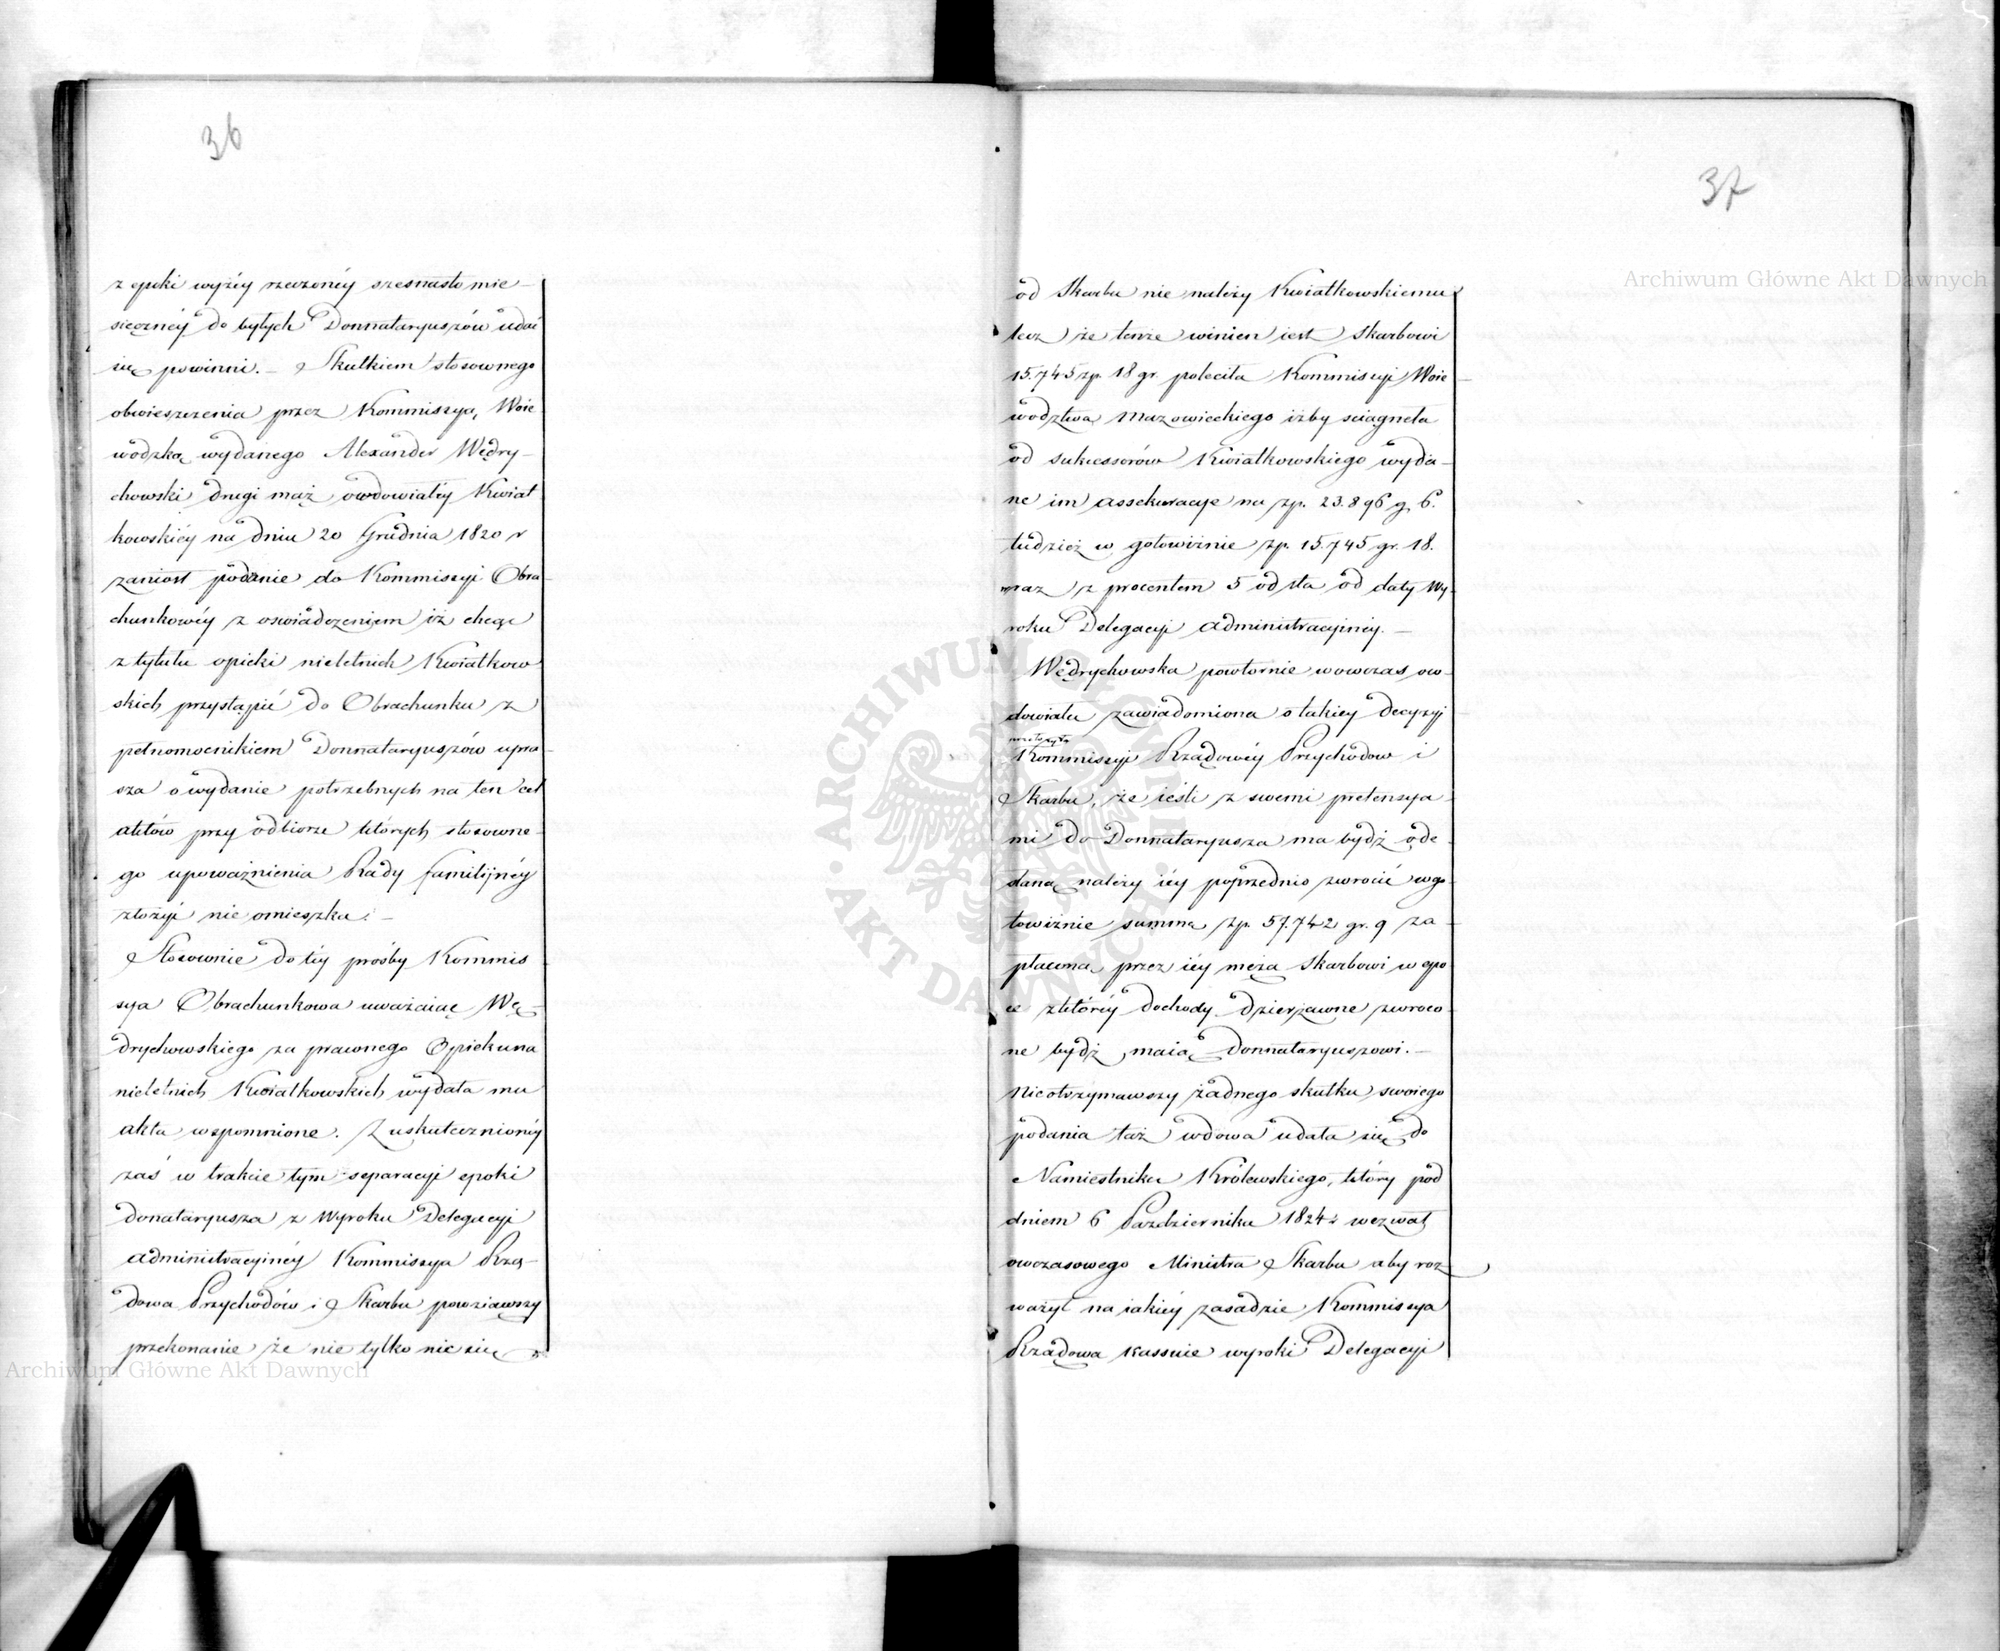 36
z epoki wyżéy rzeczonéy szesnasto mie
sięcznéy do byłych Donnataryuszów udać
się powinni. – Skutkiem stosownego
obwieszczenia przez Kommissyą Woie
wodzką wydanego Alexander Wędry-
chowski drugi mąż owdowiałéy Kwiat
kowskiéy na dniu 20 Grudnia 1820 r
zaniosł podanie do Kommissyi Obra
chunkowéy z oswiadczeniem iż chcąc
z tytułu opieki nieletnich Kwiatkow
skich przystąpić do Obrachunku z
pełnomocnikiem Donnataryuszów upra
sza o wydanie potrzebnych na ten cel
aktów przy odbiorze których stosowne-
go upoważnienia Rady familijnéy
złożyć nie omieszka. –
Stosownie do téy prośby Kommis
sya Obrachunkowa uważaiąc Wę-
drychowskiego za prawnego Opiekuna
nieletnich Kwiatkowskich wydała mu
akta wspomnione. Z uskutecznionéy
zaś w trakcie tym separacyi epoki
donataryusza z Wyroku Delegacyi
administracyinéy Kommissya Rzą-
dowa Przychodów i Skarbu powziąwszy
przekonanie że nie tylko nic się
37
od Skarbu nie należy Kwiatkowskiemu
lecz że tenże winien iest Skarbowi
15.745 zp. 18 gr. poleciła Kommissyi Woie
wodztwa Mazowieckiego iżby sciągnęła
od sukcessorów Kwiatkowskiego wyda-
ne im assekuracye na zp. 23.896 g. 6.
tudzież w gotowiznie zp. 15.745 gr. 18.
wraz z procentem 5 od sta od daty Wy-
roku Delegacyi administracyinéy. –
Wędrychowska powtornie wowczas ow-
dowiała zawiadomiona o takiey decyzyi
przełożyła
Kommissyi Rządowéy Przychodow i
Skarbu, że ieśli z swemi pretensya
mi do Donnataryusza ma bydź ode-
słaną należy iéy poprzednio zwrocić w go
towiznie summę zp. 57.742 gr. 9 za-
płaconą przez iéy męża Skarbowi w epo
ce z któréy dochody dzierżawne zwroco-
ne bydź maią Donnataryuszowi. –
Nieotrzymawszy żadnego skutku swoiego
podania taż wdowa udała się do
Namiestnika Królewskiego, który pod
dniem 6 Pazdziernika 1824 r wezwał
owczasowego Ministra Skarbu aby roz
ważył na iakiéy zasadzie Kommissya
Rządowa kassuie wyroki Delegacyi
Archiwum Główne Akt Dawnych
Archiwum Główne Akt Dawnych
ARCHIWUM GŁÓWNE AKT DAWNYCH